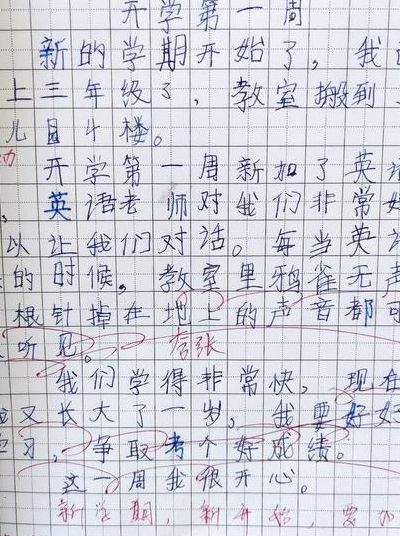 开学第一周
新的学期开始了，我
上三年级了，教室搬到
儿园4楼。
开学第一周新加了英语
英语老师对我们非常好
以让我们对话。每当英
的时候，教室里鸦雀无声
根针掉在地上的声音都可
听见。 夸张
我们学得非常快，现在
又长大了一岁，我要好好
习，争取考个好成绩。
这一周我很开心。
新学期，新开始，要加